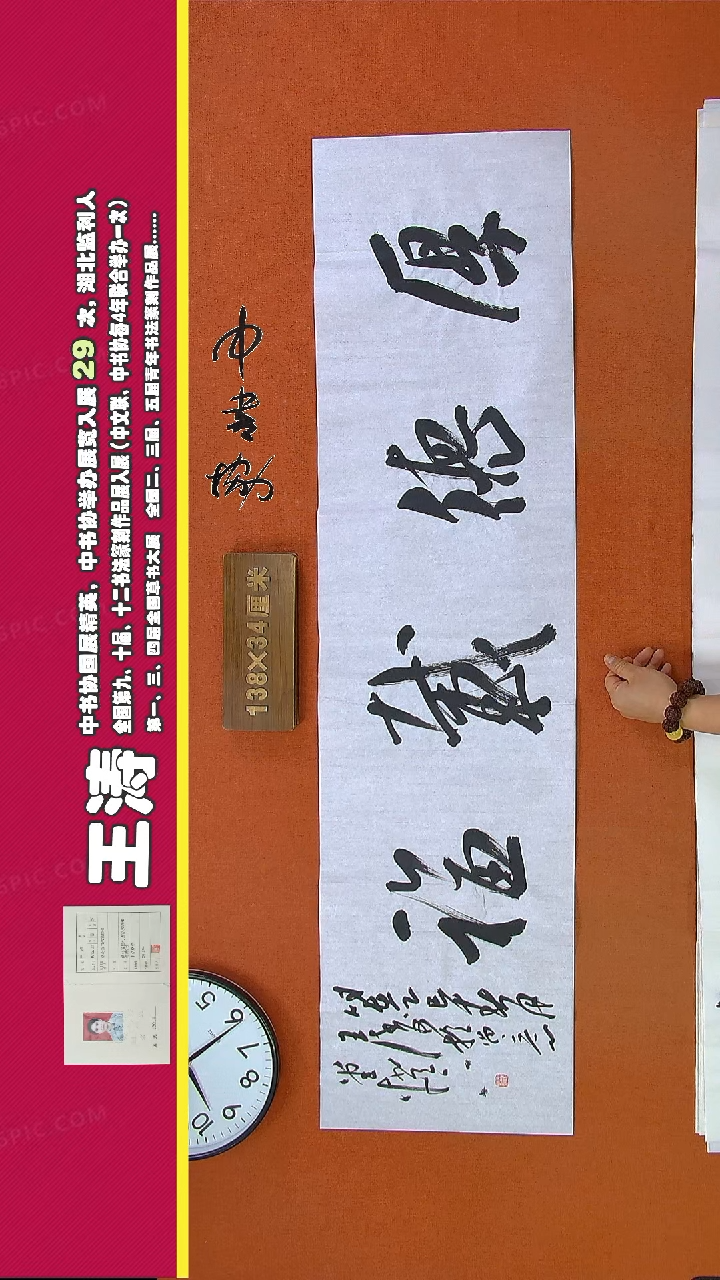 王涛
中书协国展精英，中书协举办展览入展29次，湖北监利人
全国第九、十届、十二书法篆刻作品展入展（中文联、中书协每4年联合举办一次）
第一、三、四届全国草书大展 全国二、三届、五届青年书法篆刻作品展......
138×34厘米
厚德載福
5 6 7 8 9 10